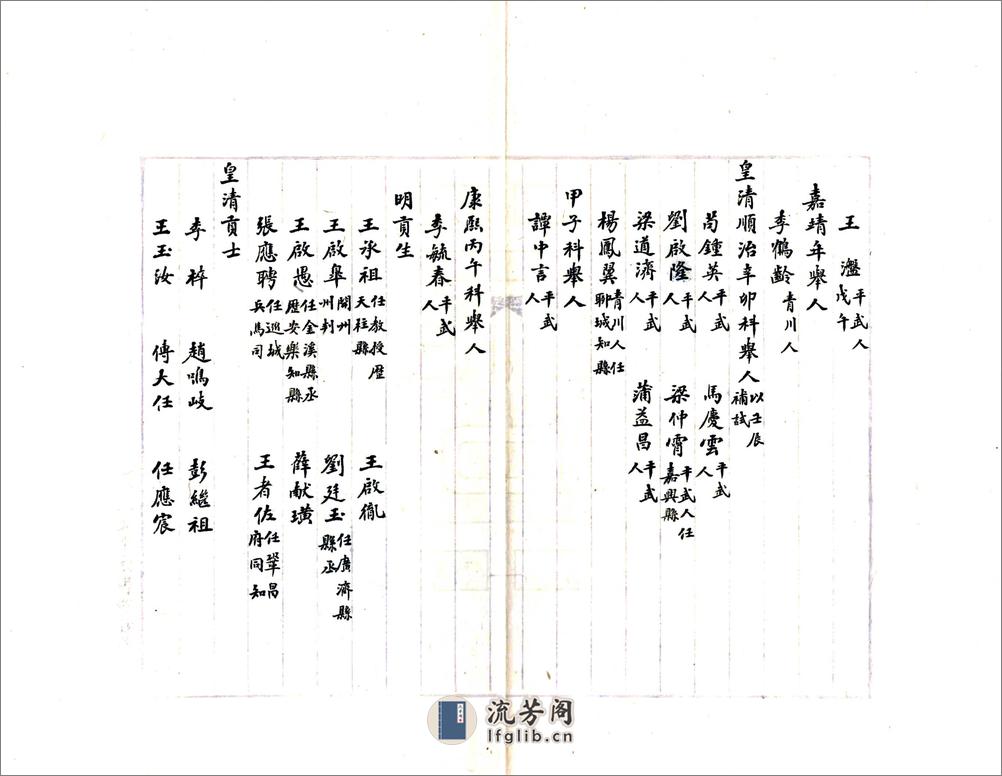 王 瀣 平武人戊午
嘉靖年舉人
李鶴齡 青川人
皇清順治辛卯科舉人 以壬辰補試
茍鍾英 平武人 馬慶雲 平武人
劉啟隆 平武人 梁仲霄 平武人任嘉興縣
梁道濟 平武人 蒲益昌 平武人
楊鳳翼 青川人任聊城知縣
甲子科舉人
譚中言 平武人
康熙丙午科舉人
李毓春 平武人
明貢生
王承祖 任教授歷天柱縣 王啟胤
王啟皐 閬州州判 劉廷玉 任廣濟縣縣丞
王啟愚 任金溪縣丞歷安樂知縣 薛献璜
張應聘 任廵城兵馬司 王者佐 任鞏昌府同知
皇清貢士
李梓 趙鳴岐 彭繼祖
王玉汝 傅大任 任應宸
流芳阁
lfglib.cn